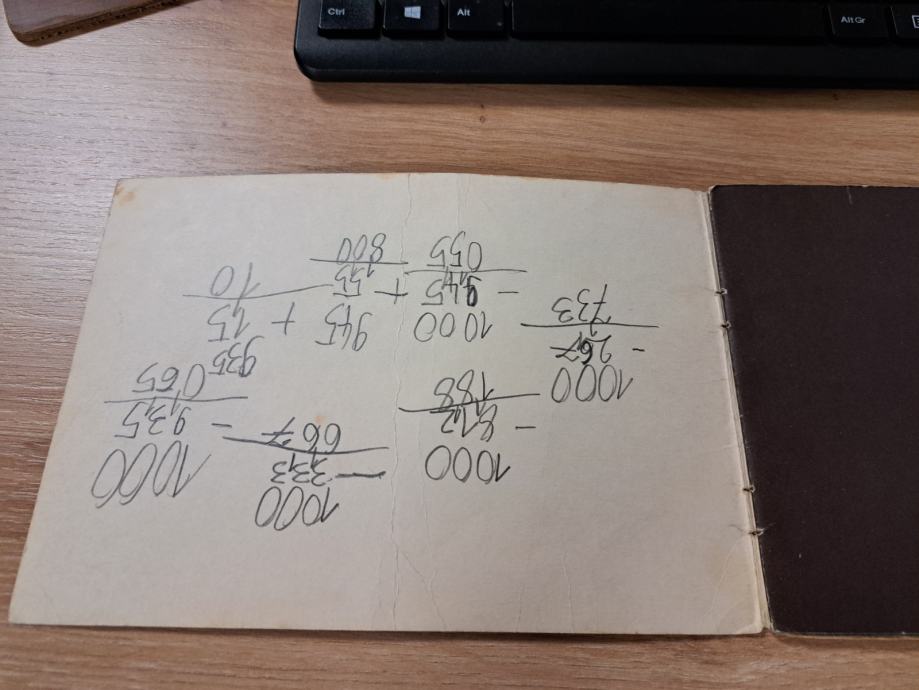 Ctrl
Alt
Alt Gr
1000
- 333
667
1000
- 935
065
1000
- 812
188
1000
- 267
733
1000
- 945
055
945
+ 55
800
935
+ 15
10